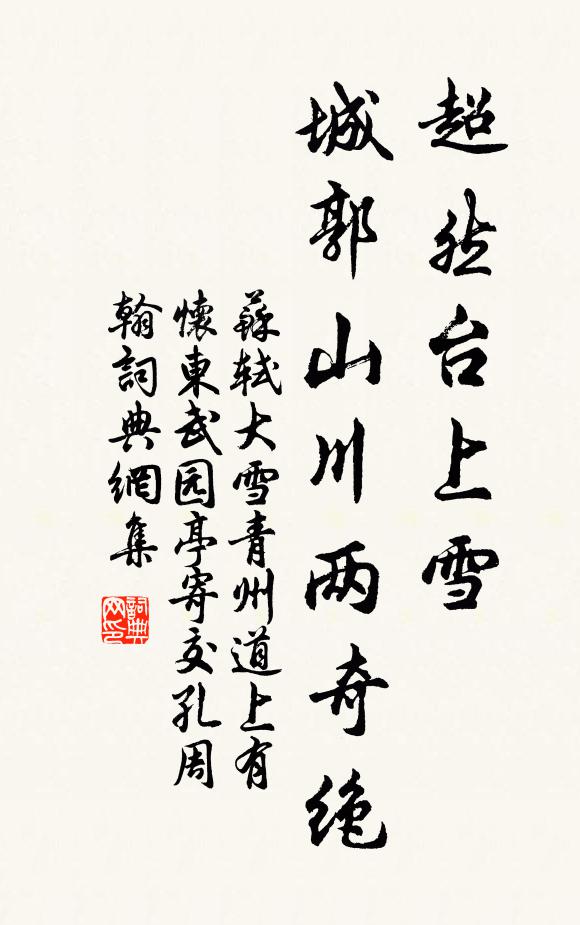 超然台上雪
城郭山川两奇绝
蘇軾大雪青州道上有
懷東武园亭寄交孔周
翰詞典網集
詞典网印